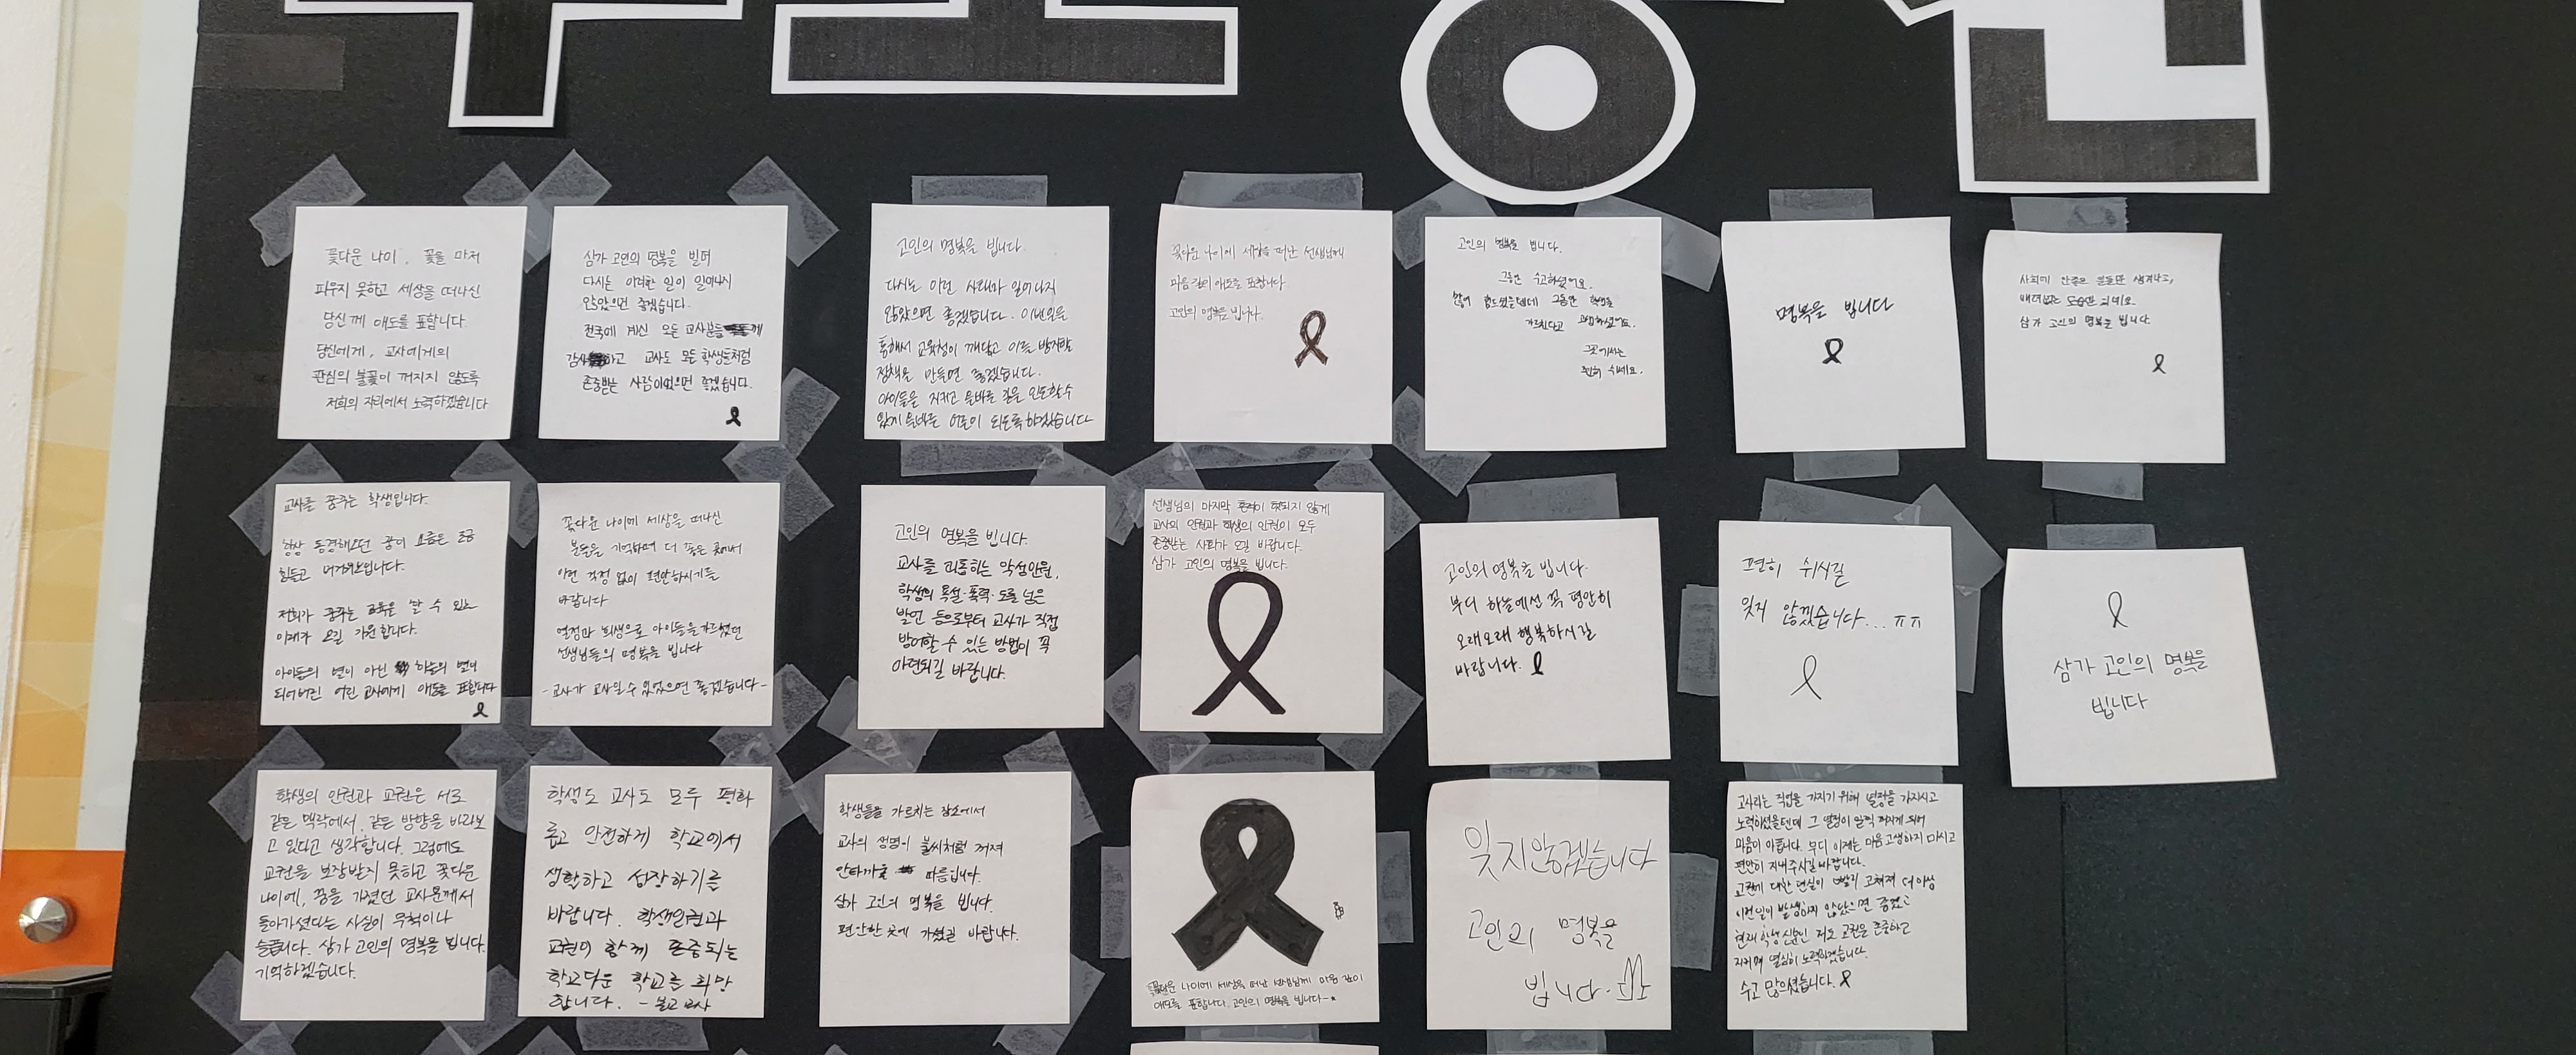 추모공간
꽃다운 나이, 꽃을 마저
피우지 못하고 세상을 떠나신
당신께 애도를 표합니다.
당신에게, 교사에게의
관심의 불꽃이 꺼지지 않도록
저희의 자리에서 노력하겠습니다
삼가 고인의 명복을 빌며
다시는 이러한 일이 일어나지
않았으면 좋겠습니다.
전국에 계신 모든 교사분들께
감사하고 교사도 모든 학생들처럼
존중받는 사람이었으면 좋겠습니다.
고인의 명복을 빕니다.
다시는 이런 사태가 일어나지
않았으면 좋겠습니다. 이번일을
통해서 교육청이 깨닫고 이를 방지할
정책을 만들면 좋겠습니다.
아이들을 지키고 올바른 길을 인도할수
있게 올바른 어른이 되도록 하겠습니다
꽃다운 나이에 세상을 떠난 선생님께
마음 깊이 애도를 표합니다.
고인의 명복을 빕니다.
고인의 명복을 빕니다.
그동안 수고하셨어요.
많이 힘드셨을텐데 그동안 학생들
가르친다고 고생하셨어요.
그곳에서는
편히 쉬세요.
명복을 빕니다
사회에 안좋은 일들만 생겨나고,
삼가 고인의 명복을 빕니다.
교사를 꿈꾸는 학생입니다.
항상 동경해오던 꿈이 요즘은 조금
힘들고 버거워보입니다.
저희가 꿈꾸는 교육을 할 수 있는
미래가 오길 기원합니다.
아이들의 별이 아닌 하늘의 별이
되어버린 어린 교사에게 애도를 표합니다
꽃다운 나이에 세상을 떠나신
분들을 기억하며 더 좋은 곳에서
아무 걱정 없이 편안하시기를
바랍니다
열정과 희생으로 아이들을 가르쳤던
선생님들의 명복을 빕니다
-교사가 교사일 수 있었으면 좋겠습니다-
고인의 명복을 빕니다.
교사를 괴롭히는 악성민원,
학생의 욕설·폭력·도를 넘은
발언 등으로부터 교사가 직접
방어할 수 있는 방법이 꼭
마련되길 바랍니다.
선생님의 마지막 흔적이 헛되지 않게
교사의 인권과 학생의 인권이 모두
존중받는 사회가 오길 바랍니다.
삼가 고인의 명복을 빕니다.
고인의 명복을 빕니다.
부디 하늘에선 꼭 평안히
오래오래 행복하시길
바랍니다.
편히 쉬시길
잊지 않겠습니다... ㅠㅠ
삼가 고인의 명복을
빕니다
학생의 인권과 교권은 서로
같은 맥락에서, 같은 방향을 바라보
고 있다고 생각합니다. 그럼에도
교권을 보장받지 못하고 꽃다운
나이에, 꿈을 가졌던 교사분께서
돌아가셨다는 사실이 무척이나
슬픕니다. 삼가 고인의 명복을 빕니다.
기억하겠습니다.
학생도 교사도 모두 평화
롭고 안전하게 학교에서
생활하고 성장하기를
바랍니다. 학생인권과
교권이 함께 존중되는
학교다운 학교를 희망
합니다. - 본교 교사
학생들을 가르치는 장소에서
교사의 생명이 불씨처럼 꺼져
안타까운 마음입니다.
삼가 고인의 명복을 빕니다.
편안한 곳에 가셨길 바랍니다.
꽃다운 나이에 세상을 떠난 선생님께 마음 깊이
애도를 표합니다. 고인의 명복을 빕니다-
잊지않겠습니다
고인의 명복을
빕니다.
교사라는 직업을 가지기 위해 열정을 가지시고
노력하셨을텐데 그 열정이 일찍 꺼지게 되어
마음이 아픕니다. 부디 이제는 마음고생하지 마시고
편안히 지내주시길 바랍니다.
교권에 대한 현실이 빨리 고쳐져 더이상
이런일이 발생하지 않았으면 좋겠고
현재 학생 신분인 저도 교권을 존중하고
지키며 열심히 노력하겠습니다.
수고 많으셨습니다.